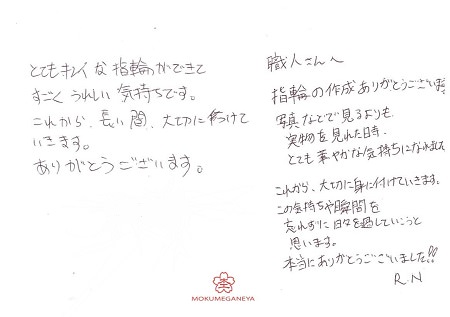 とてもキレイな指輪ができて
すごくうれしい気持ちです。
これから、長い間、大切につけて
いきます。
ありがとうございます。
職人さんへ
指輪の作成ありがとうございました
写真などで見るよりも
実物を見れた時、
とても華やかな気持ちになれました
これから、大切に身に付けていきます。
この気持ちや瞬間を
忘れずに日々を過していこうと
思います。
本当にありがとうございました!!
R.N
MOKUMEGANEYA